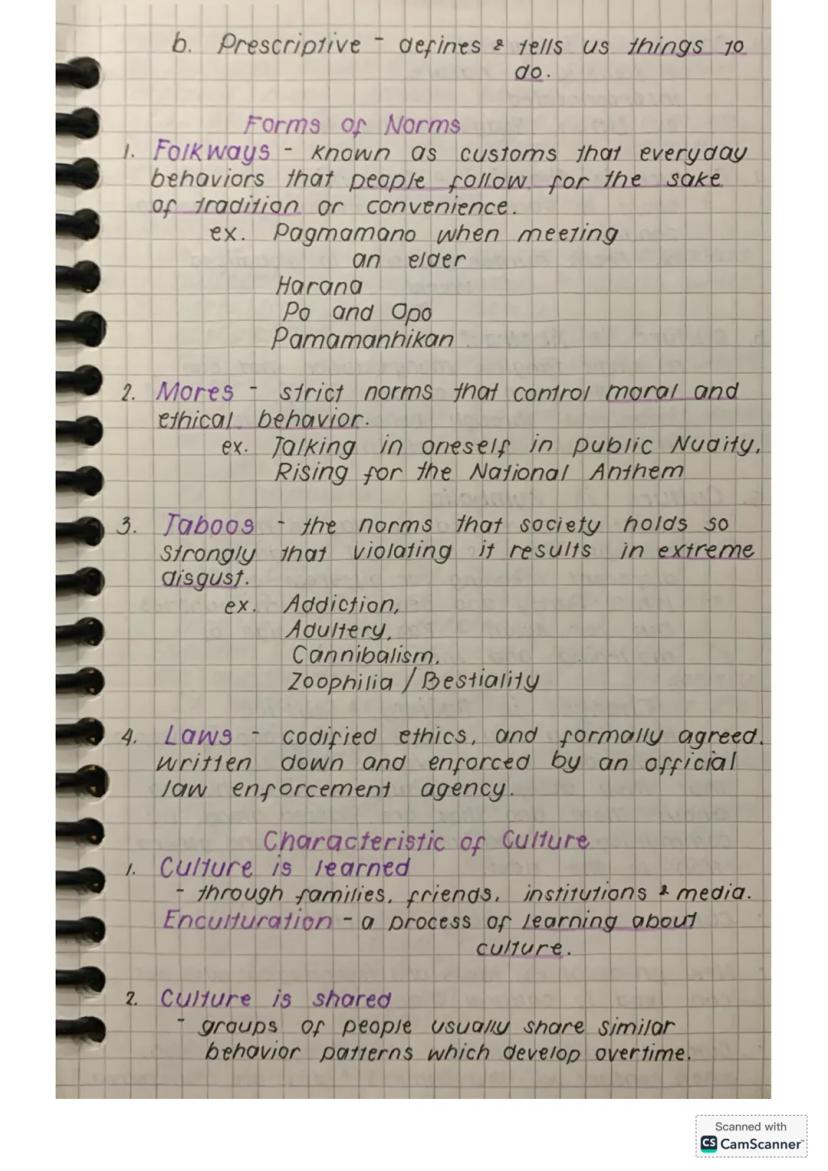 b. Prescriptive - defines & tells us things to
do.
Forms of Norms
1. Folkways - known as customs that everyday
behaviors that people follow for the sake
of tradition or convenience.
ex. Pagmamano when meeting
an elder
Harana
Po and Opo
Pamamanhikan
2. Mores - strict norms that control moral and
ethical behavior.
ex. Talking in oneself in public Nudity,
Rising for the National Anthem
3. Taboos - the norms that society holds so
strongly that violating it results in extreme
disgust.
ex. Addiction,
Adultery,
Cannibalism,
Zoophilia / Bestiality
4. Laws - codified ethics, and formally agreed,
written down and enforced by an official
law enforcement agency.
Characteristic of Culture
1. Culture is learned
- through families, friends, institutions & media.
Enculturation - a process of learning about
culture.
2. Culture is shared
- groups of people usually share similar
behavior patterns which develop overtime.
Scanned with
CS CamScanner